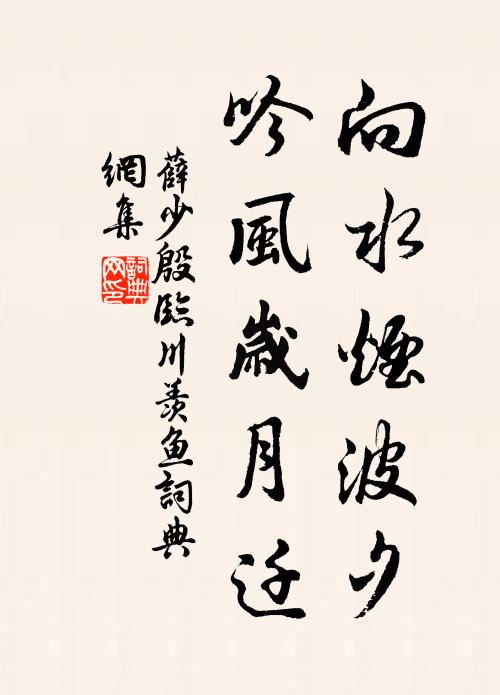 向水煙波夕
吟風歲月迁
薛少殷臨川羨魚詞典
網集
詞典
网印